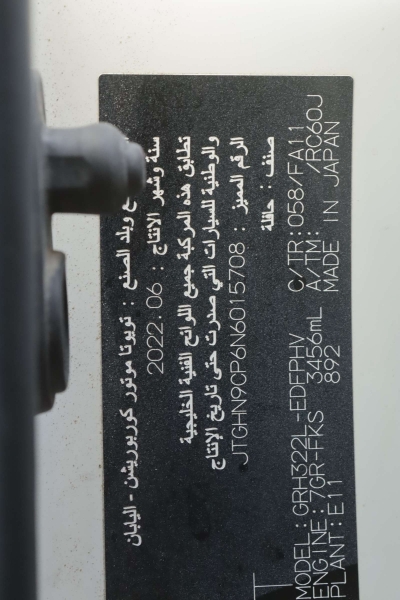 ع وبلد الصنع : تويوتا موتور كوربوريشن - اليابان
سنة وشهر الانتاج : 2022.06
تطابق هذه المركبة جميع اللوائح الفنية الخليجية
والوطنية للسيارات التي صدرت حتى تاريخ الإنتاج
الرقم المميز : JTGHN9CP6N6015708
صنف : حافلة
T
MODEL : GRH322L-EDFPHV C/TR: 058/FA11
ENGINE : 7GR-FKS 3456mL A/TM: /RC60J
PLANT : E11 892 MADE IN JAPAN